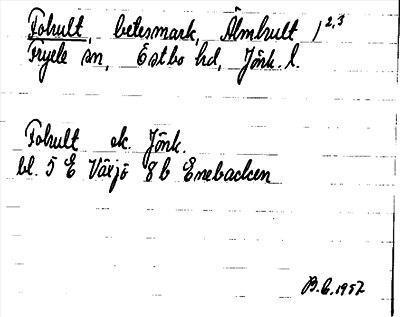 Fohult, betesmark, Älmhult 1 2,3
Fryele sn, Östbo hd, Jönk. l.
Fohult ek. Jönk.
bl. 5 E Växjö 8 b Enebacken
B.C. 1957